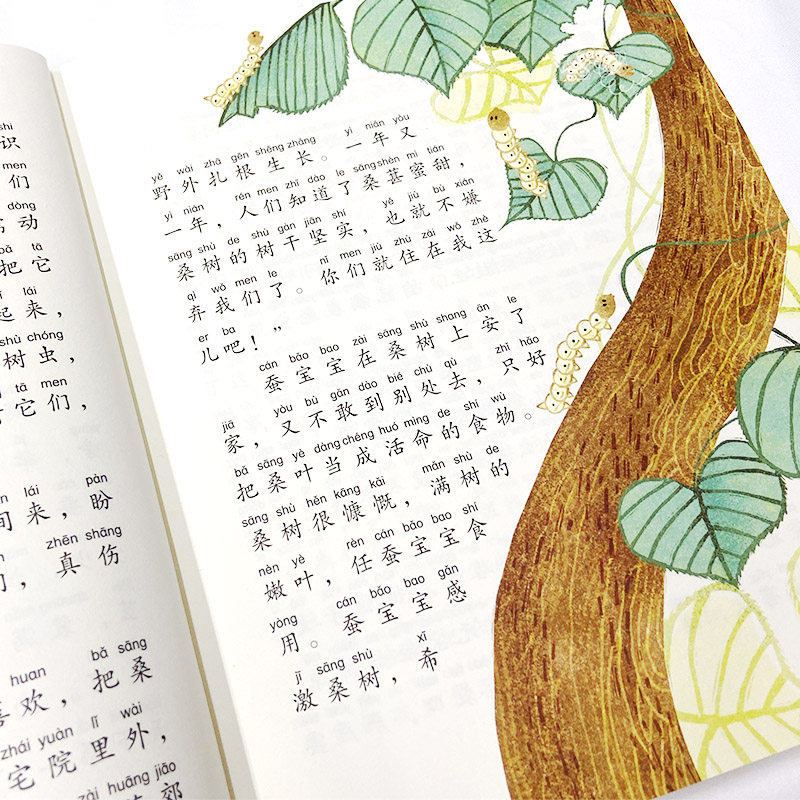 shi
识
men
们
dòng
动
bǎ tā
把它
lái
起来，
shù chóng
树虫，
tā men
它们，
lái pàn
来，盼
zhēn shāng
，真伤
huan bǎ sāng
喜欢，把桑
zhái yuàn lǐ wài
宅院里外，
zài huāng jiāo
在荒郊
yě wài zhā gēn shēng zhǎng yì nián yòu
野外扎根生长。一年又
yì nián rén men zhī dào le sāng shèn mì tián
一年，人们知道了桑葚蜜甜，
sāng shù de shù gàn jiān shí yě jiù bù xián
桑树的树干坚实，也就不嫌
qì wǒ men le nǐ men jiù zhù zài wǒ zhè
弃我们了。你们就住在我这
er ba
儿吧！”
cán bǎo bao zài sāng shù shang ān le
蚕宝宝在桑树上安了
jiā yòu bù gǎn dào bié chù qù zhǐ hǎo
家，又不敢到别处去，只好
bǎ sāng yè dàng chéng huó mìng de shí wù
把桑叶当成活命的食物。
sāng shù hěn kāng kǎi mǎn shù de
桑树很慷慨，满树的
nèn yè rèn cán bǎo bao shí
嫩叶，任蚕宝宝食
yòng cán bǎo bao gǎn
用。蚕宝宝感
jī sāng shù xī
激桑树，希